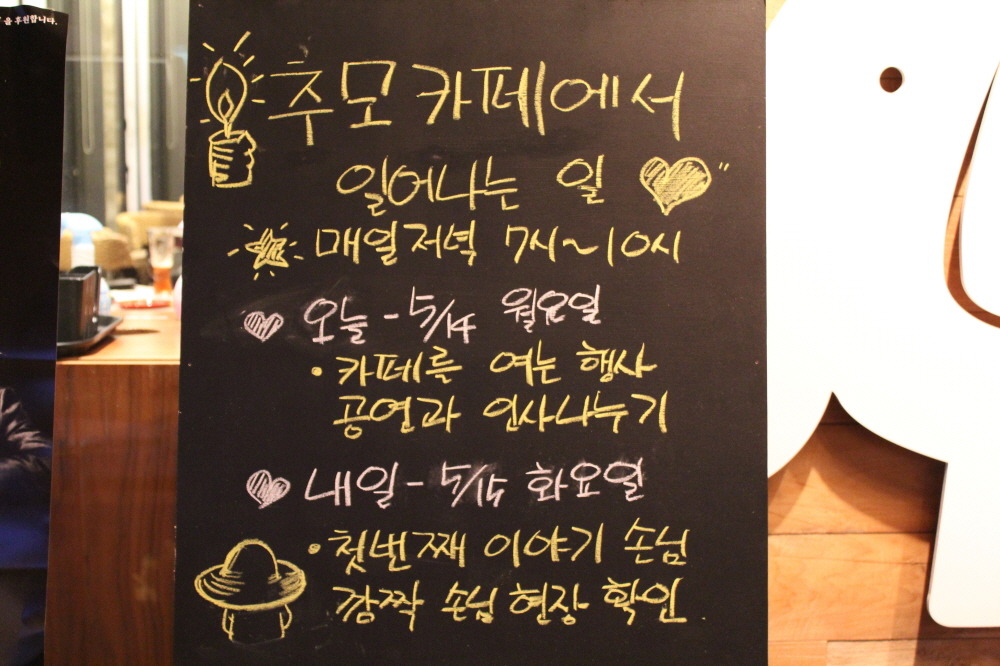 을 후원합니다.
추모카페에서
일어나는 일
매일저녁 7시~10시
오늘 - 5/14 월요일
· 카페를 여는 행사
공연과 인사나누기
내일 - 5/15 화요일
· 첫번째 이야기 손님
깜짝 손님 현장 확인.